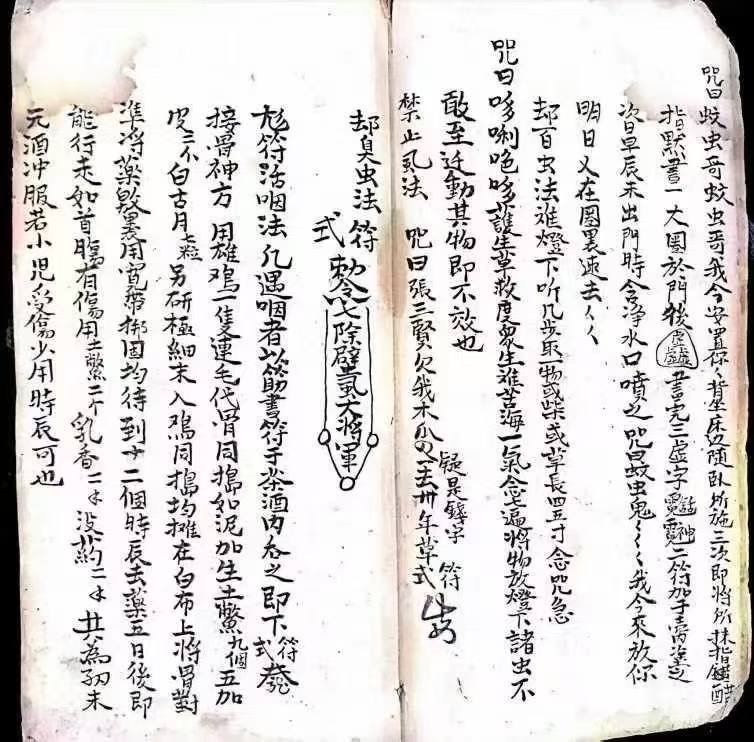 咒曰蚊虫哥蚊虫哥我今安置你〻背坐床边随卧所施三次即將所抹指
指默書一大圈於門後虛虛虛書完三虛字神二符加于上
次日早辰未出門時含净水口噴之咒曰蚊虫鬼〻〻〻我今來放你
明日又在圈里速去〻〻
却百虫法誰燈下听几步取一物或柴或草長四五寸念咒急
咒曰哆唎吔哆護生草救度眾生難苦海一氣念七遍將物放燈下諸虫不
敢至迁動其物即不效也
禁止虱法 咒曰張三賢欠我木瓜錢 年草式 疑是錢字 符
却臭虫法 符式 敕令七除壁虱大將軍
符活咽法凡遇咽者以筯書符于茶酒内吞之即下 符式
接骨神方 用雄鸡一隻連毛代骨同搗如泥加生土鱉九個五加
皮三个白古月七粒另研極細末入鸡同搗均攤在白布上將骨對
準將藥敷裏用寬帶綁固均待到十二個時辰去藥五日後即
能行走如首傷有傷用土鱉二个乳香二 没药二 共為細末
元酒冲服若小児受傷少用時辰可也